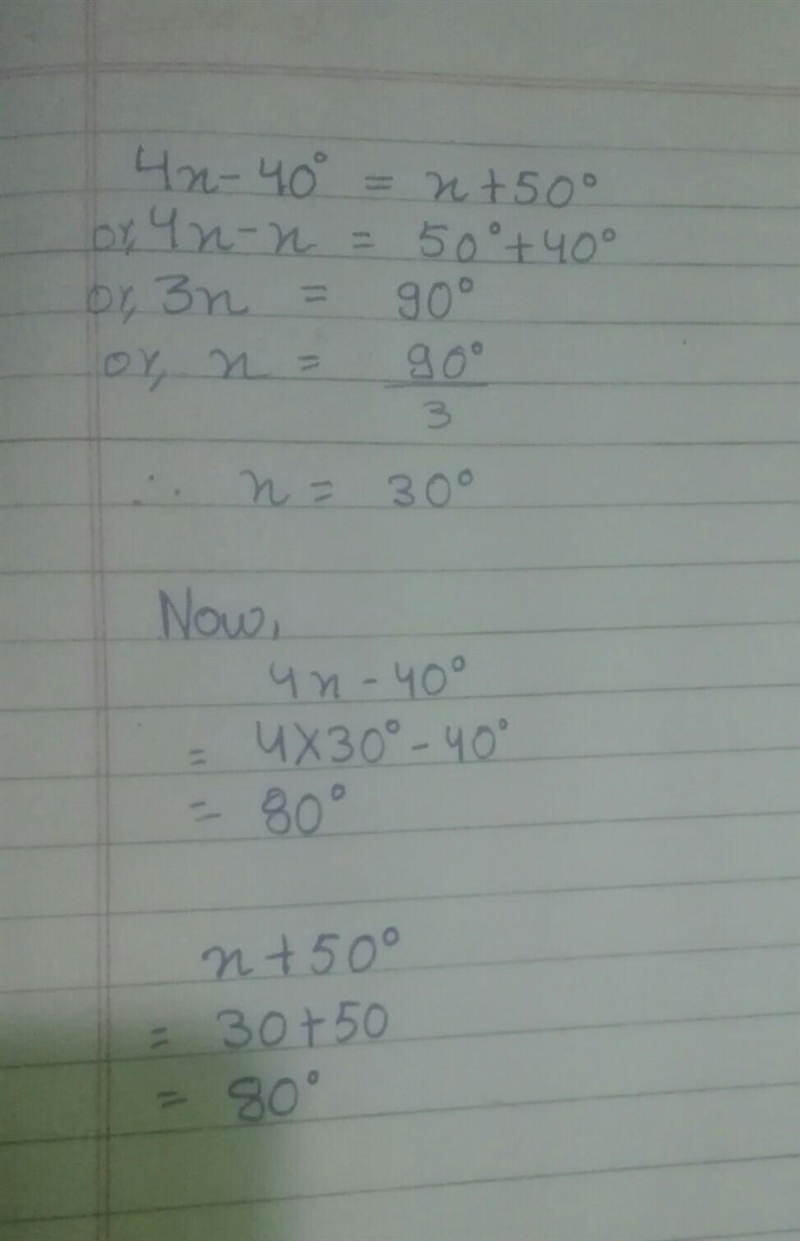 4x - 40° = x + 50°
or, 4x - x = 50° + 40°
or, 3x = 90°
or, x = 90°
3
∴ x = 30°
Now,
4x - 40°
= 4×30° - 40°
= 80°
x + 50°
= 30 + 50
= 80°